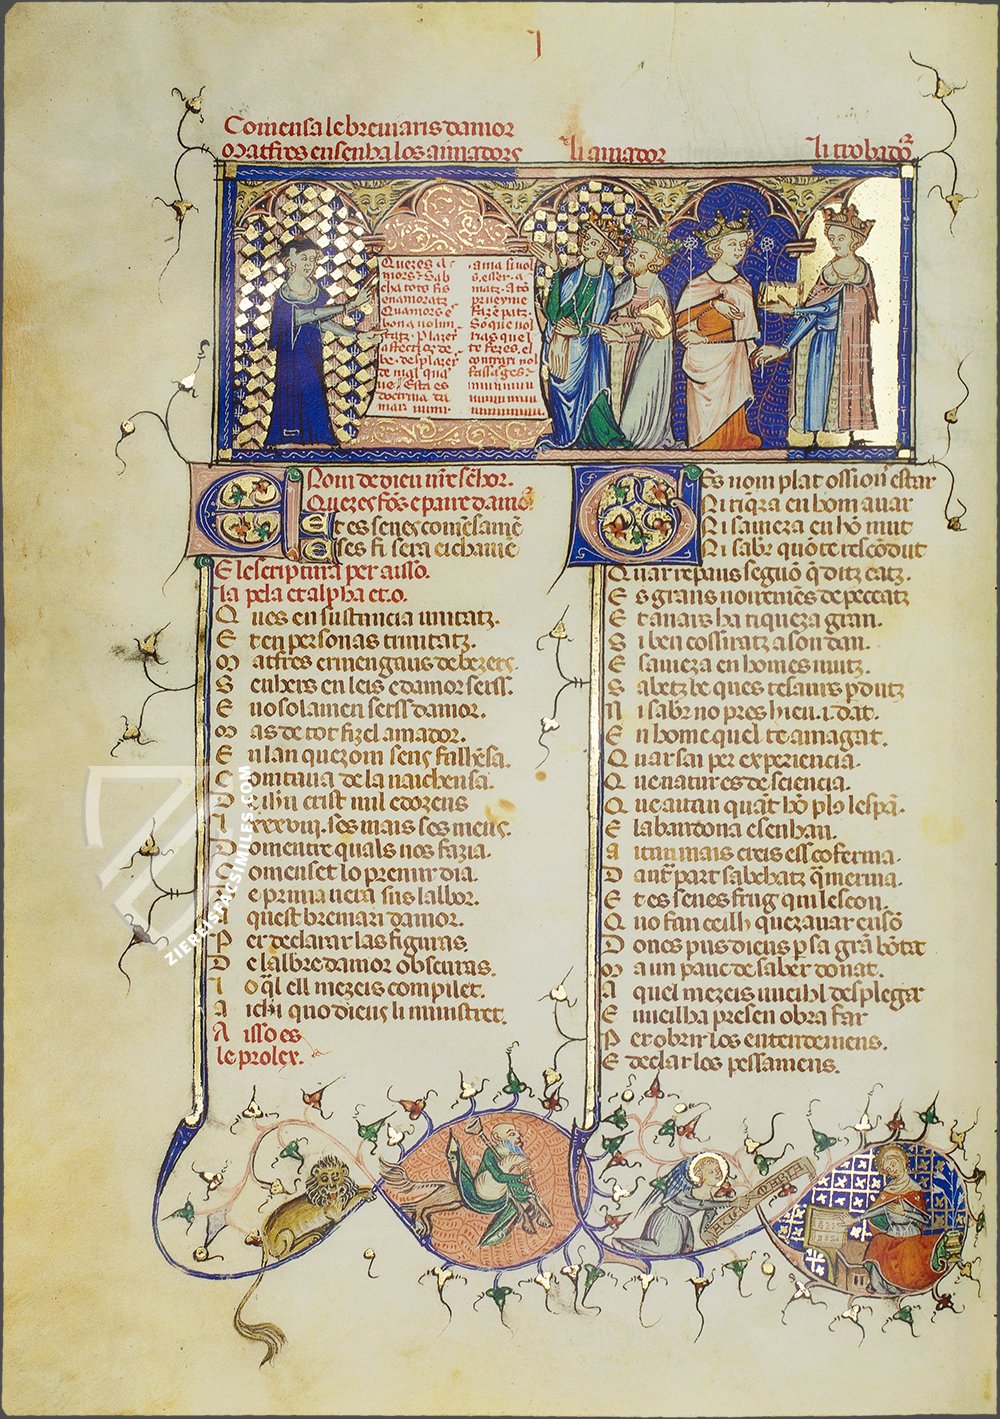 I
Comensa le breviaris damor
Matfres ensenha los aimadors
li amador
li trobador
Queres a
mors? Sab
cha tots fis
enamoratz
Quamors e
bona volun
tatz. Plazer
affectios de
be. desplazer
de mal qua
ue. Esta es
doctrina da
mar
ama si vol
esser. a
matz. Ato
prueyme
faze patz.
So que vol
has quel
te fezes. el
contrari nol
fassages
El Nom de dieu nostre senhor.
Que res fons e paire damor.
Et es senes comensamen
E ses fi sera eichamen
E lescriptura per aisso.
la pela et alpha et .o.
Ques en sustancia unitatz.
E ten personas trinitatz.
Matfres ermengaus de bezers.
Senhers en leis e damor serss.
E no solamen serss damor.
Mas de tot fizel amador.
En lan que hom sens falhensa.
Comtava de la naichensa.
De ihu crist mil e dozens
Lxxxviii. ses mais ses mens.
Domentre quals nos fazia.
Comenset lo premir dia.
De prima vera sus lalbor.
Aquest breviari damor.
Per declarar las figuras.
De lalbre damor obscuras.
Loqal ell mezeis compilet.
Aichi quo dieus li ministret.
Aisso es
le prolex.
Ges nom plat ossion estar
Ni riqeza en hom avar
Ni savieza en hom mut
Ni saber quom te rescondut
Quar repaus seguon qe ditz catz.
Es grans noiremens de peccatz
E tanais ha riqueza gran.
Si ben cossiratz a son dan.
E savieza en homes mutz.
Sabetz be ques tesaurs perdutz
Ni saber no pres hieu .i. dat.
En home quel te amagat.
Quar sai per experiencia.
Que natur es de sciencia.
Que aitan quant hom plus lespan.
E labandona e senhan.
Aitan mais creis e is coferma.
Dautra part sabchatz que merma.
E tes senes frug qui lescon.
Quo fan ceilh quez avar e nso
Doncs pus dieus per sa gran bontat
Ma un pauc de saber donat.
Aquel mezeis vueihl desplegar
E vueilha presen obra far
Per obrir los entendemens.
E declar los pessamens.
ZIEREISFACSIMILES.COM